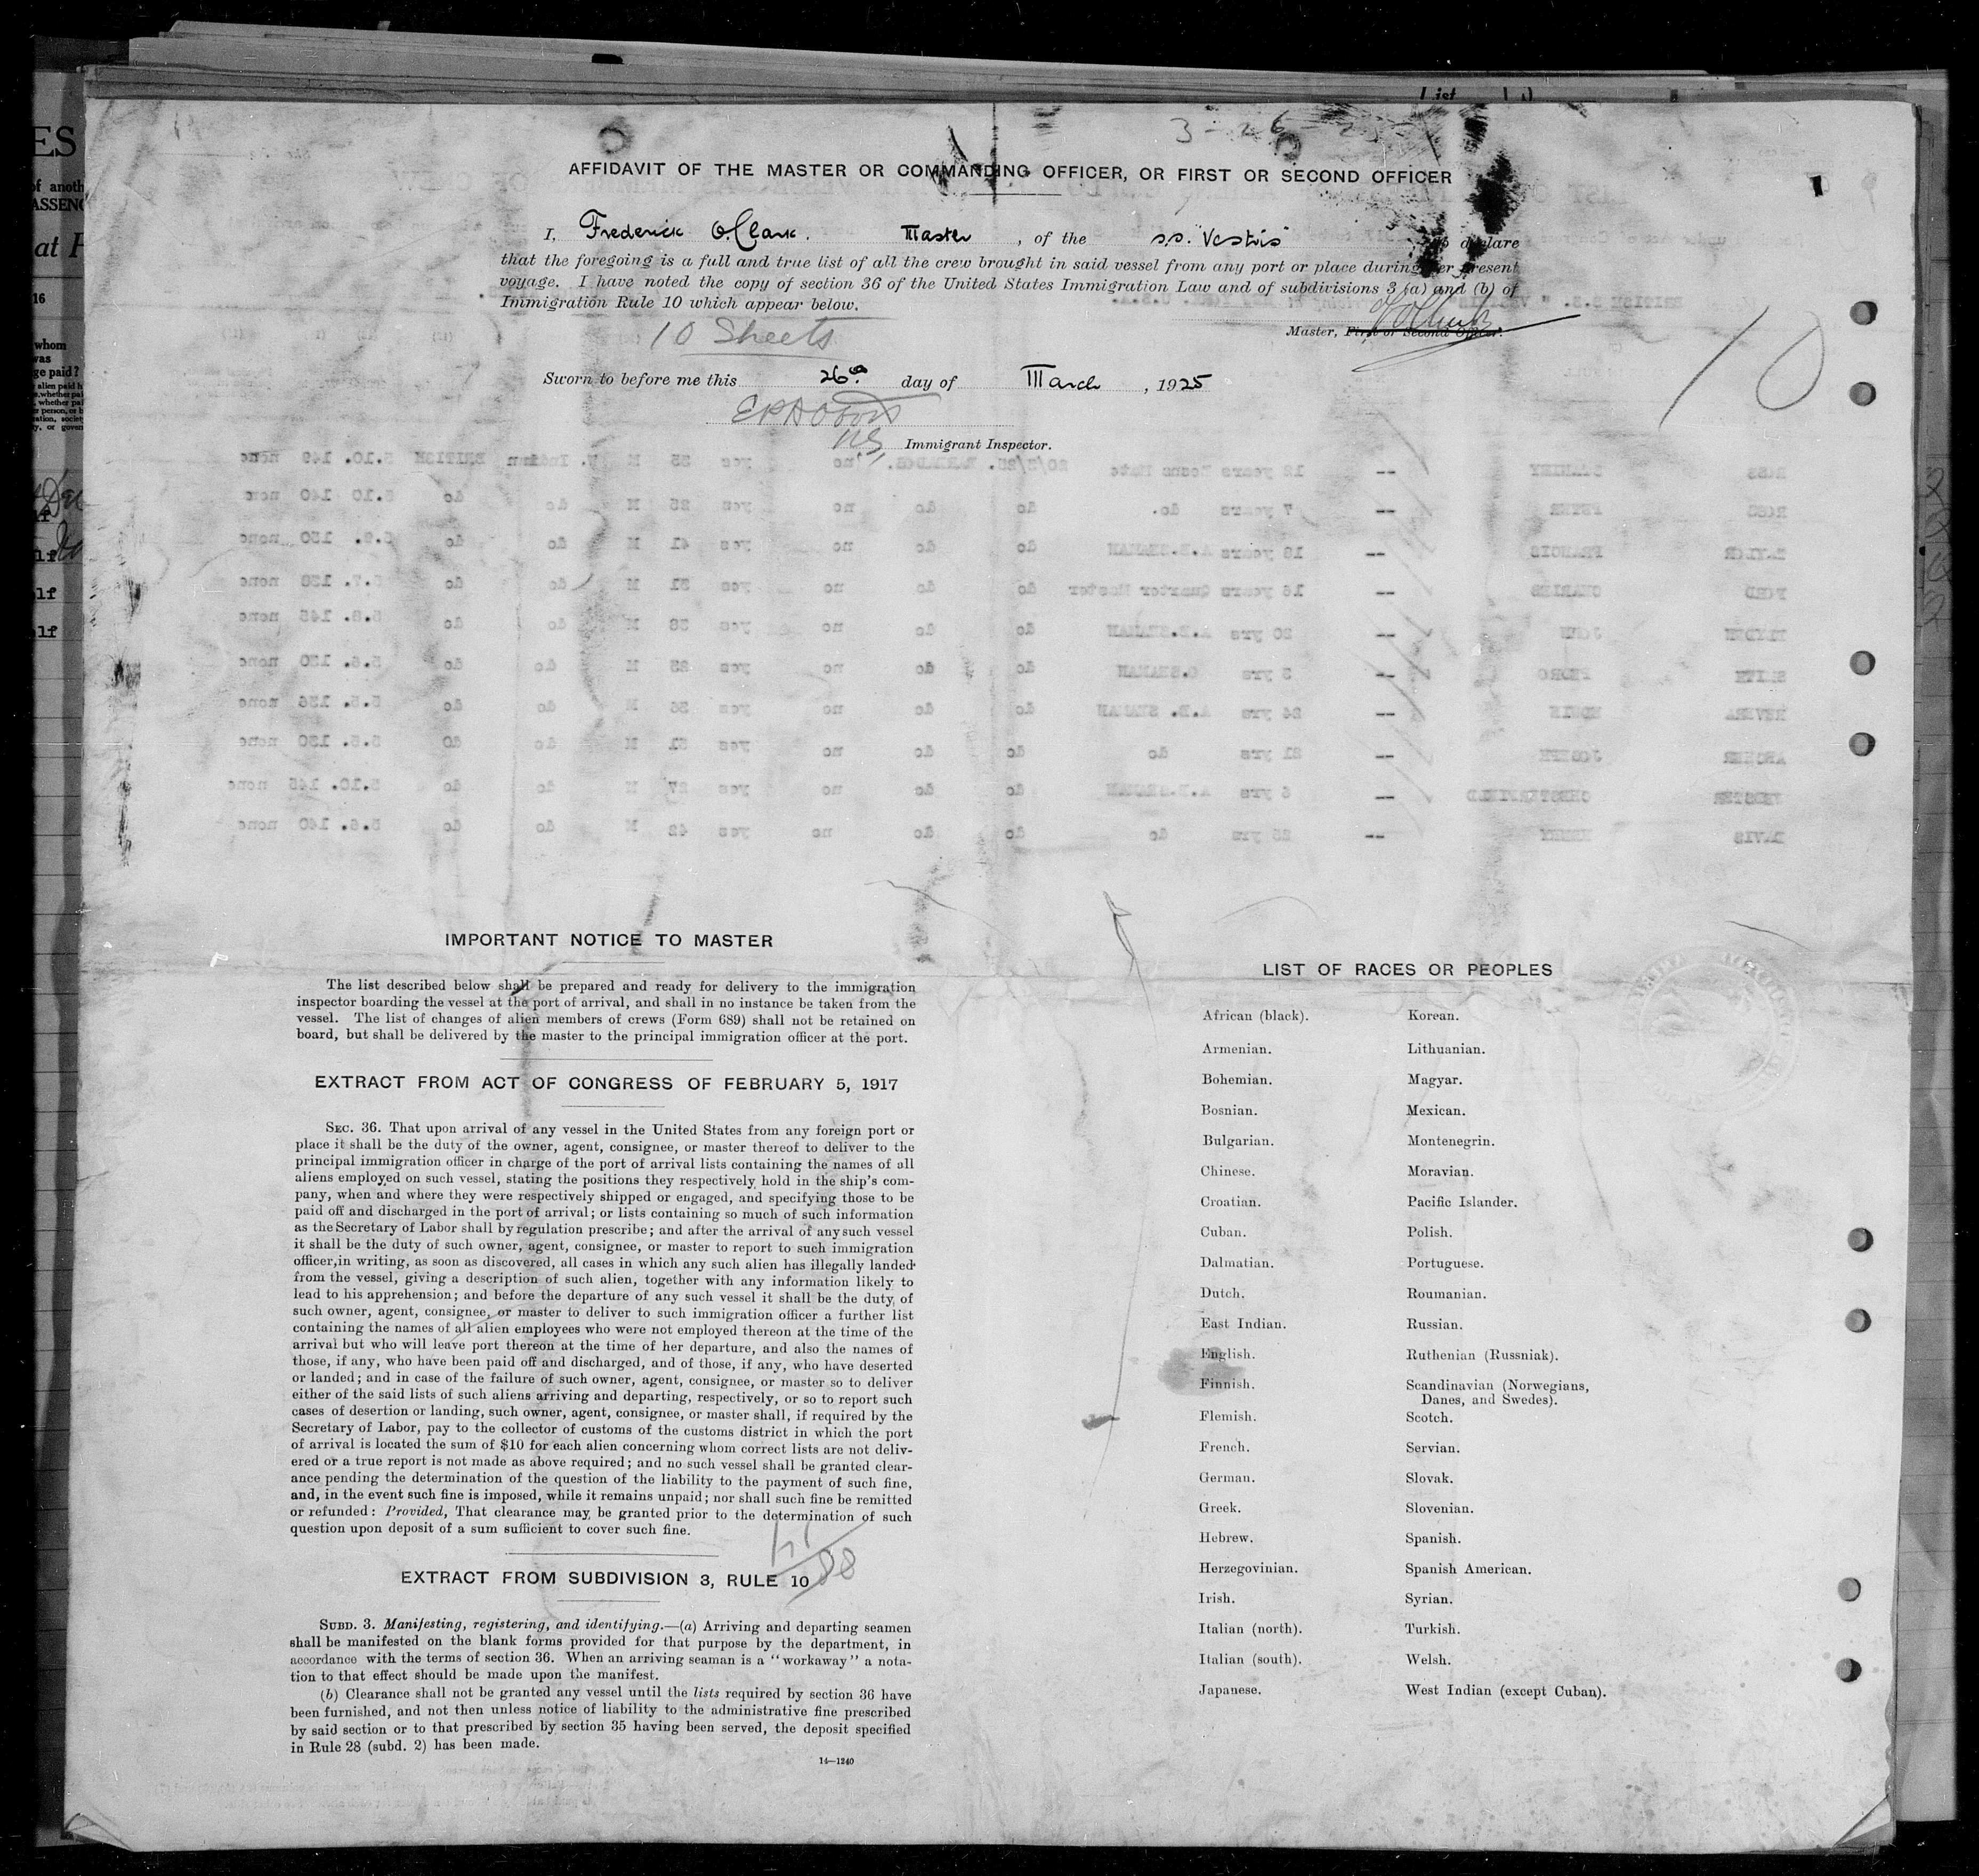 3-26-25
AFFIDAVIT OF THE MASTER OR COMMANDING OFFICER, OR FIRST OR SECOND OFFICER
I, Frederick O. Clark. Master, of the s.s. "Vestris", do declare
that the foregoing is a full and true list of all the crew brought in said vessel from any port or place during her present
voyage. I have noted the copy of section 36 of the United States Immigration Law and of subdivisions 3 (a) and (b) of
Immigration Rule 10 which appear below.
10 Sheets
Master, First or Second Officer.
10
Sworn to before me this 26th day of March, 1925
Immigrant Inspector.
IMPORTANT NOTICE TO MASTER
The list described below shall be prepared and ready for delivery to the immigration
inspector boarding the vessel at the port of arrival, and shall in no instance be taken from the
vessel. The list of changes of alien members of crews (Form 689) shall not be retained on
board, but shall be delivered by the master to the principal immigration officer at the port.
EXTRACT FROM ACT OF CONGRESS OF FEBRUARY 5, 1917
SEC. 36. That upon arrival of any vessel in the United States from any foreign port or
place it shall be the duty of the owner, agent, consignee, or master thereof to deliver to the
principal immigration officer in charge of the port of arrival lists containing the names of all
aliens employed on such vessel, stating the positions they respectively hold in the ship's com-
pany, when and where they were respectively shipped or engaged, and specifying those to be
paid off and discharged in the port of arrival; or lists containing so much of such information
as the Secretary of Labor shall by regulation prescribe; and after the arrival of any such vessel
it shall be the duty of such owner, agent, consignee, or master to report to such immigration
officer, in writing, as soon as discovered, all cases in which any such alien has illegally landed
from the vessel, giving a description of such alien, together with any information likely to
lead to his apprehension; and before the departure of any such vessel it shall be the duty of
such owner, agent, consignee, or master to deliver to such immigration officer a further list
containing the names of all alien employees who were not employed thereon at the time of the
arrival but who will leave port thereon at the time of her departure, and also the names of
those, if any, who have been paid off and discharged, and of those, if any, who have deserted
or landed; and in case of the failure of such owner, agent, consignee, or master so to deliver
either of the said lists of such aliens arriving and departing, respectively, or so to report such
cases of desertion or landing, such owner, agent, consignee, or master shall, if required by the
Secretary of Labor, pay to the collector of customs of the customs district in which the port
of arrival is located the sum of $10 for each alien concerning whom correct lists are not deliv-
ered or a true report is not made as above required; and no such vessel shall be granted clear-
ance pending the determination of the question of the liability to the payment of such fine,
and, in the event such fine is imposed, while it remains unpaid; nor shall such fine be remitted
or refunded: Provided, That clearance may be granted prior to the determination of such
question upon deposit of a sum sufficient to cover such fine.
88
EXTRACT FROM SUBDIVISION 3, RULE 10
SUBD. 3. Manifesting, registering, and identifying.—(a) Arriving and departing seamen
shall be manifested on the blank forms provided for that purpose by the department, in
accordance with the terms of section 36. When an arriving seaman is a "workaway" a nota-
tion to that effect should be made upon the manifest.
(b) Clearance shall not be granted any vessel until the lists required by section 36 have
been furnished, and not then unless notice of liability to the administrative fine prescribed
by said section or to that prescribed by section 35 having been served, the deposit specified
in Rule 28 (subd. 2) has been made.
14—1240
LIST OF RACES OR PEOPLES
African (black).
Armenian.
Bohemian.
Bosnian.
Bulgarian.
Chinese.
Croatian.
Cuban.
Dalmatian.
Dutch.
East Indian.
English.
Finnish.
Flemish.
French.
German.
Greek.
Hebrew.
Herzegovinian.
Irish.
Italian (north).
Italian (south).
Japanese.
Korean.
Lithuanian.
Magyar.
Mexican.
Montenegrin.
Moravian.
Pacific Islander.
Polish.
Portuguese.
Roumanian.
Russian.
Ruthenian (Russniak).
Scandinavian (Norwegians,
Danes, and Swedes).
Scotch.
Servian.
Slovak.
Slovenian.
Spanish.
Spanish American.
Syrian.
Turkish.
Welsh.
West Indian (except Cuban).